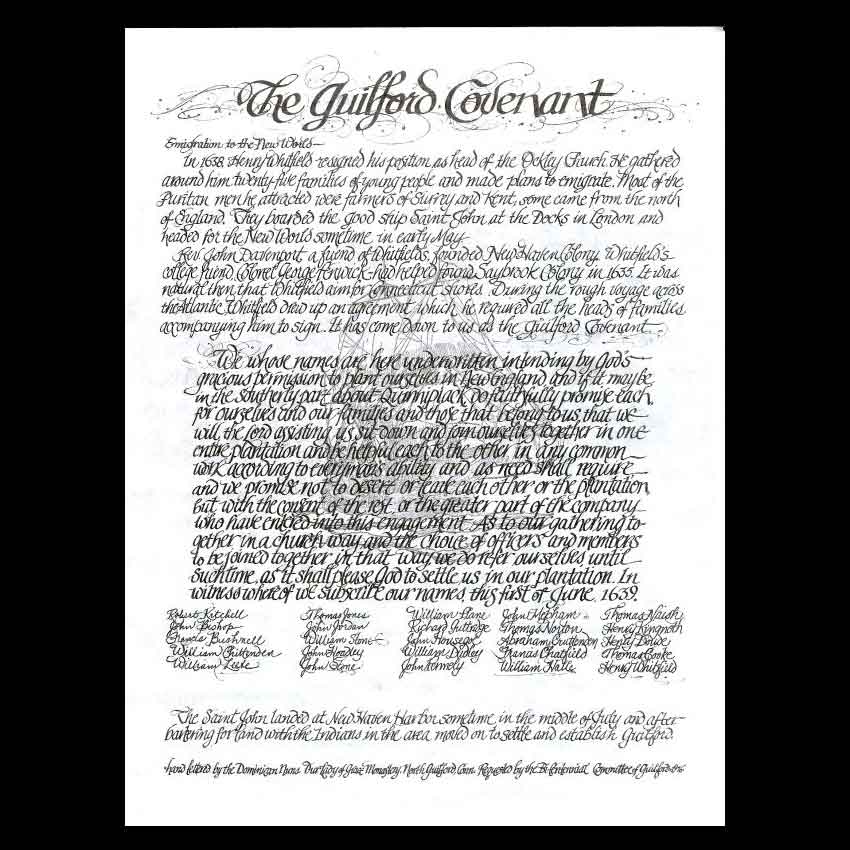 The Guilford Covenant
Emigration to the New World—
In 1638 Henry Whitfield resigned his position as head of the Ockley Church. He gathered
around him twenty-five families of young people and made plans to emigrate. Most of the
Puritan men he attracted were farmers of Surrey and Kent, some came from the north
of England. They boarded the good ship Saint John at the Docks in London and
headed for the New World sometime in early May.
Rev. John Davenport, a friend of Whitfield's, founded New Haven Colony. Whitfield's
college friend, Colonel George Fenwick had helped found Saybrook Colony in 1635. It was
natural then that Whitfield aim for Connecticut shores. During the rough voyage across
the Atlantic Whitfield drew up an agreement which he required all the heads of families
accompanying him to sign. It has come down to us as the Guilford Covenant.
We whose names are here underwritten intending by God's
gracious permission to plant ourselves in New England and if it may be,
in the southerly part about Quinnipiack do faithfully promise each,
for ourselves and our families and those that belong to us, that we
will, the Lord assisting us, sit down and join ourselves together in one
entire plantation and be helpful each to the other in any common
work according to every man's ability and as need shall require
and we promise not to desert or leave each other or the plantation
but with the consent of the rest, or the greater part of the company
who have entered into this engagement. As to our gathering to-
gether in a church way and the choice of officers and members
to be joined together in that way, we do refer ourselves until
such time, as it shall please God to settle us in our plantation. In
witness whereof we subscribe our names, this first of June, 1639.
Robert Kitchell Thomas Jones William Plane John Mepham Thomas Naish
John Bishop John Jordan Richard Guttridge Thomas Norton Henry Kingnoth
Francis Bushnell William Stone John Housego Abraham Cruttenden Henry Dowde
William Chittenden John Hoadley William Dudley Francis Chatfield Thomas Cooke
William Leete John Stone John Parmely William Halle Henry Whitfield
The Saint John landed at New Haven Harbor sometime in the middle of July and after
bartering for land with the Indians in the area moved on to settle and establish Guilford.
hand lettered by the Dominican Nuns Our Lady of Grace Monastery, North Guilford, Conn. Requested by the Bi-Centennial Committee of Guilford